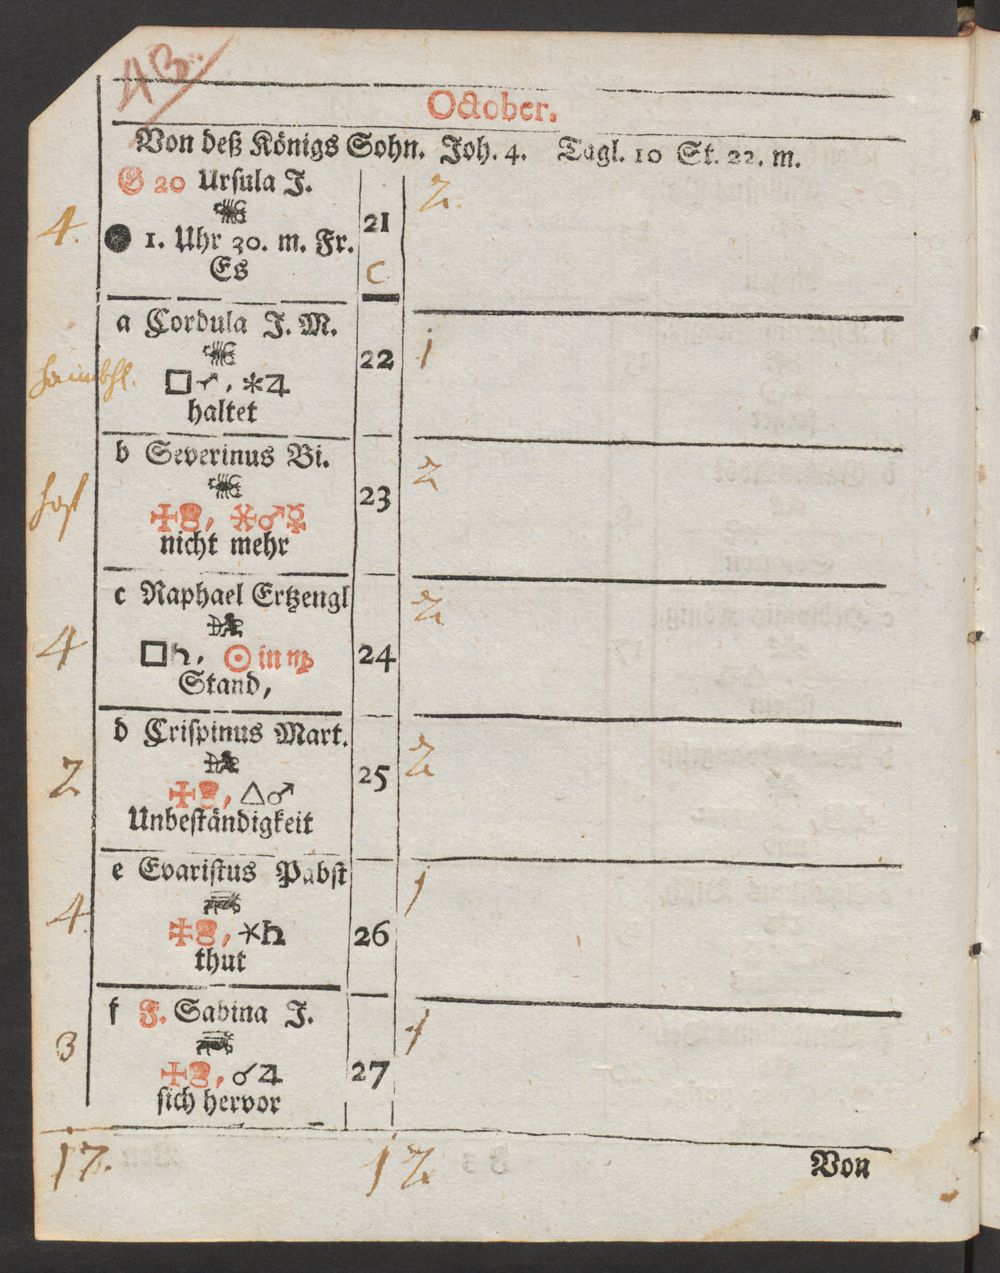 43
October.
Von deß Königs Sohn. Joh. 4. Tagl. 10 St. 22. m.
G 20 Ursula J. 21 2.
4. ● 1. Uhr 30. m. Fr.
Es C
a Cordula J. M. 22 1
□♂, ✶♃
haltet
b Severinus Bi. 23 2
✶♂☿
nicht mehr
c Raphael Ertzengl 24 2
4 □♄, ☉ in ♏
Stand,
d Crispinus Mart. 25 2
2 △♂
Unbeständigkeit
e Evaristus Pabst 26 1
4. ✶♄
thut
f F. Sabina J. 27 1
3 ☌♃
sich hervor
17. 12
Von